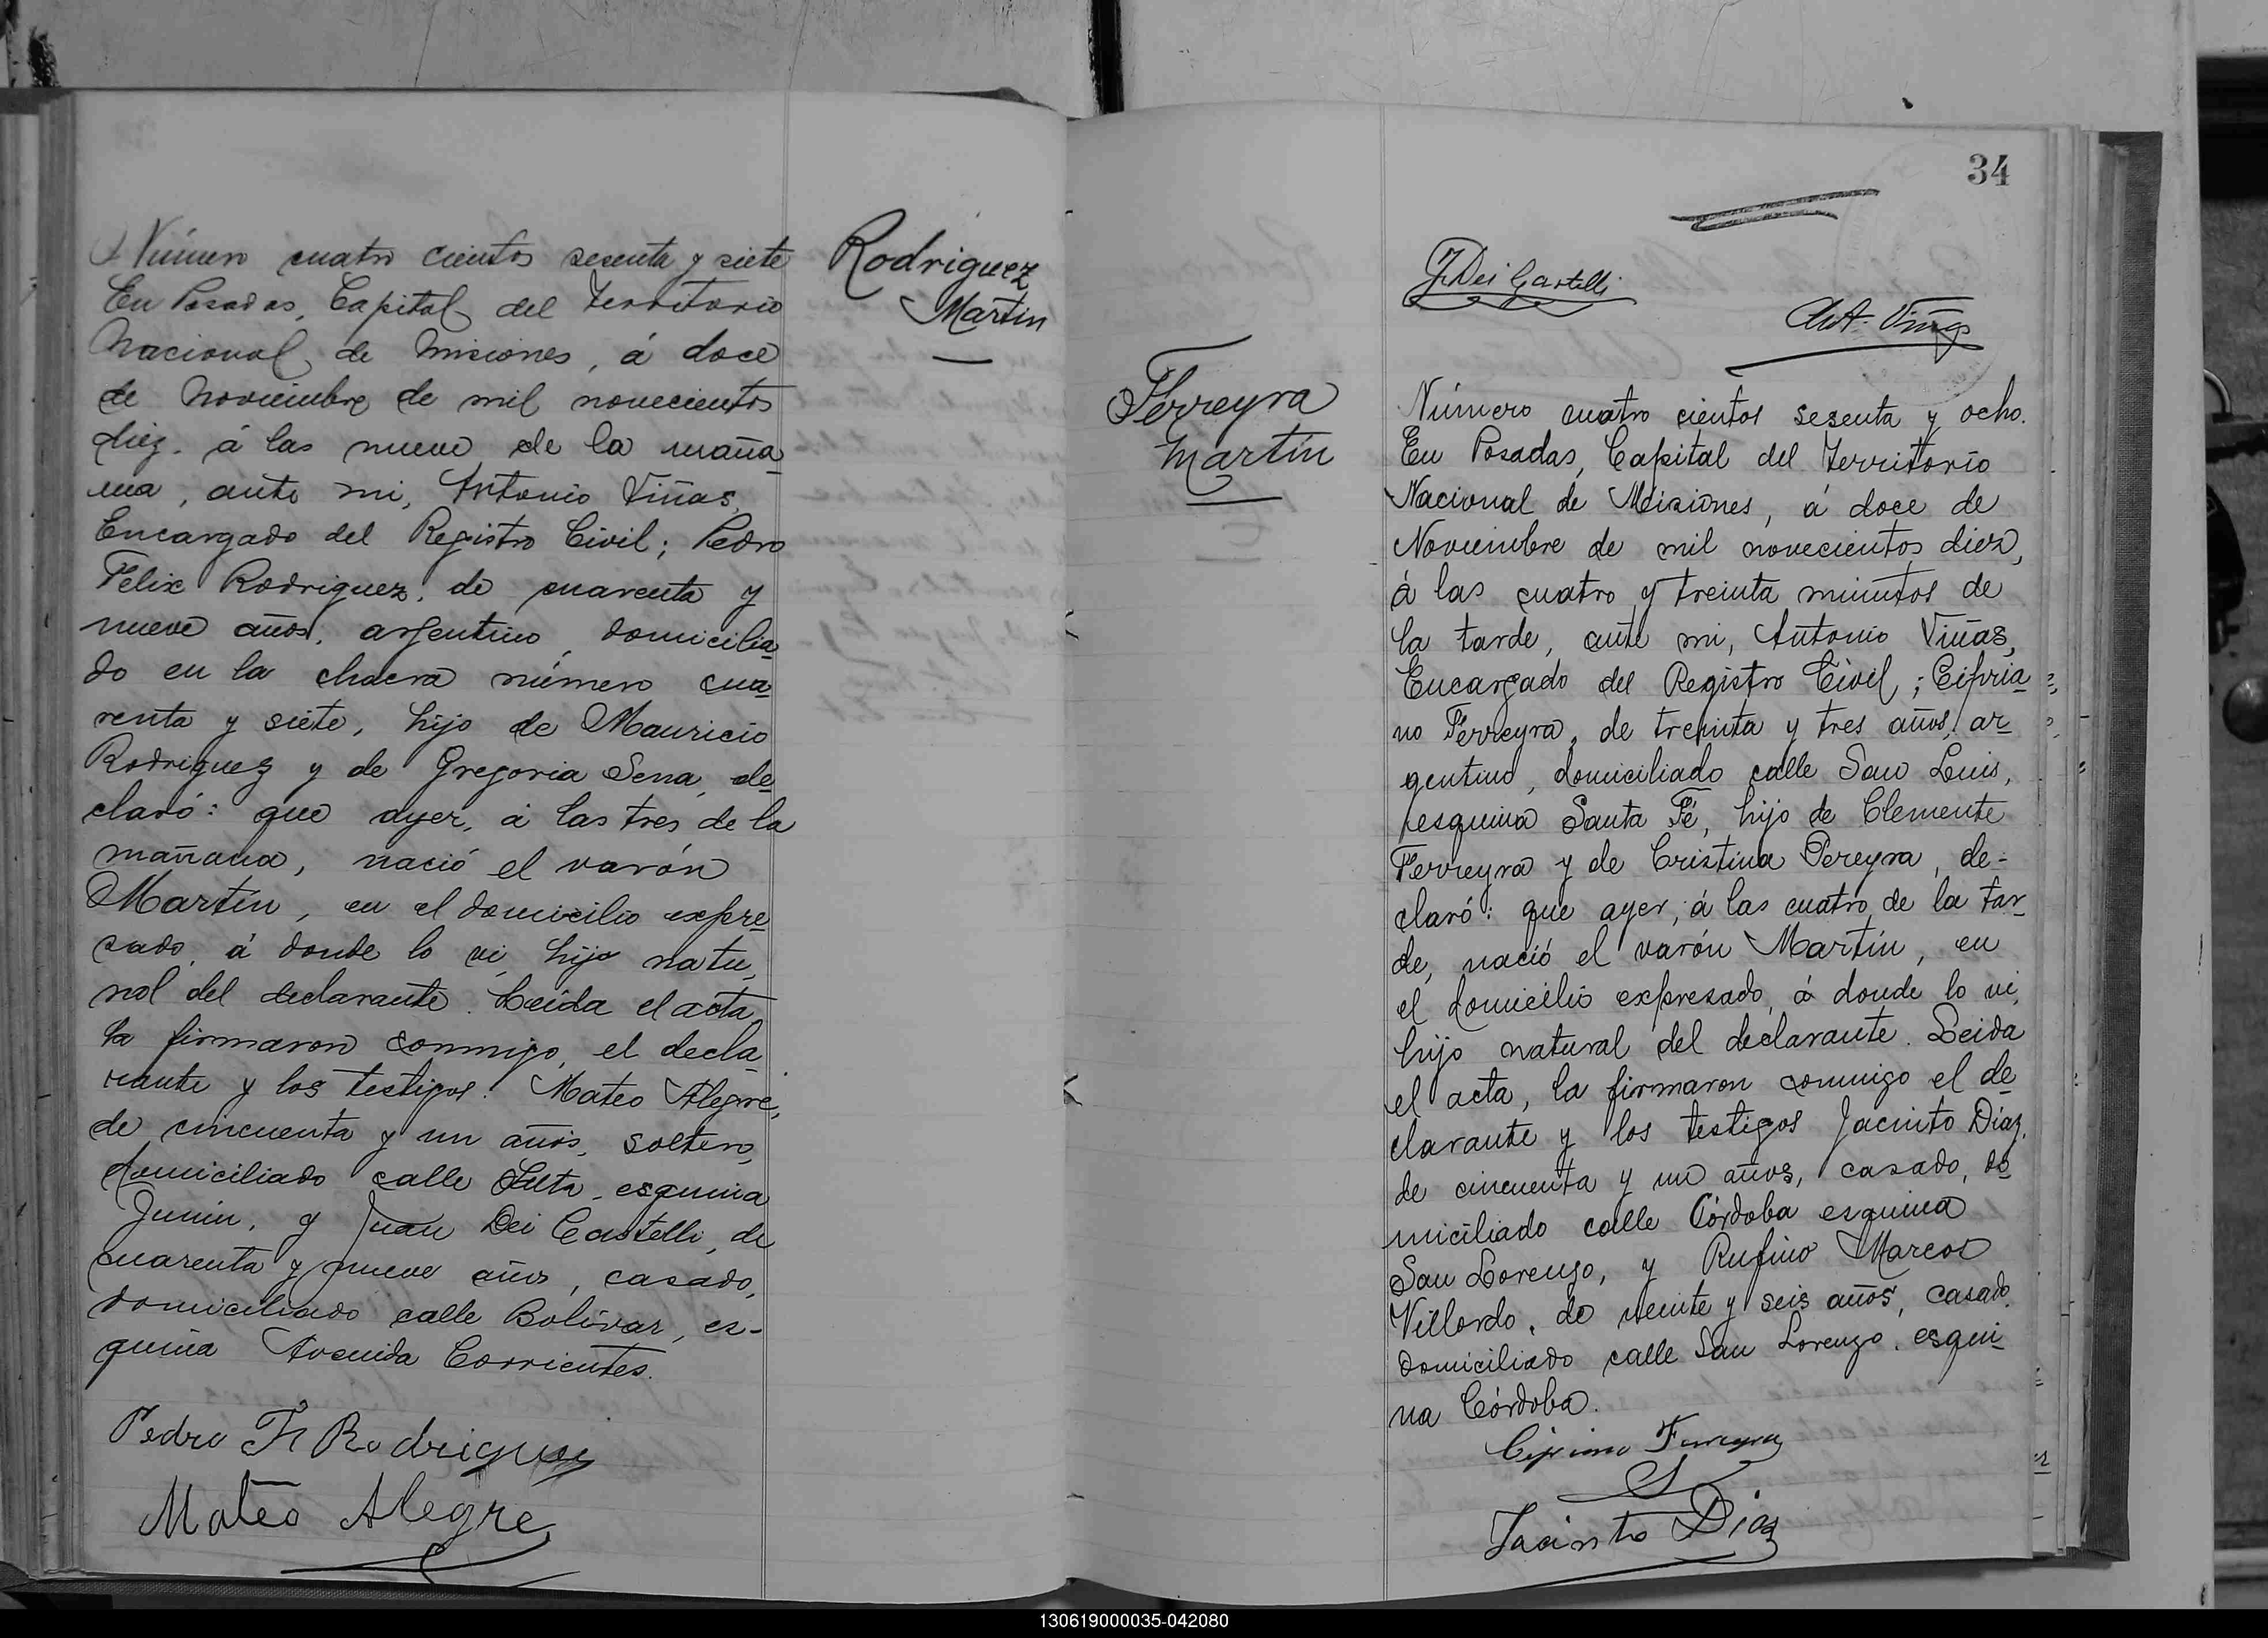 Número cuatro cientos sesenta y siete
En Posadas, Capital del Territorio
Nacional de Misiones, á doce
de Noviembre de mil novecientos
diez, á las nueve de la maña-
na, ante mi, Antonio Viñas,
Encargado del Registro Civil; Pedro
Felix Rodriguez, de cuarenta y
nueve años, argentino, domicilia-
do en la chacra número cua-
renta y siete, hijo de Mauricio
Rodriguez y de Gregoria Sena, de-
claró: que ayer, á las tres de la
mañana, nació el varón
Martín, en el domicilio expre-
sado, á donde lo vi, hijo natu-
ral del declarante. Leida el acta
la firmaron conmigo, el decla-
rante y los testigos: Mateo Alegre,
de cincuenta y un años, soltero,
domiciliado calle esquina
Junin, y Juan Dei Castelli, de
cuarenta y nueve años, casado,
domiciliado calle Bolívar, es-
quina Avenida Corrientes.
Pedro F Rodriguez
Mateo Alegre
Rodriguez
Martin
34
J. Dei Castelli
Ant. Viñas
Ferreyra
Martín
Número cuatro cientos sesenta y ocho.
En Posadas, Capital del Territorio
Nacional de Misiones, á doce de
Noviembre de mil novecientos diez,
á las cuatro y treinta minutos de
la tarde, ante mi, Antonio Viñas,
Encargado del Registro Civil; Cipria-
no Ferreyra, de treinta y tres años, ar-
gentino, domiciliado calle San Luis,
esquina Santa Fé, hijo de Clemente
Ferreyra y de Cristina Pereyra, de-
claró: que ayer, á las cuatro de la tar-
de, nació el varón Martín, en
el domicilio expresado, á donde lo vi,
hijo natural del declarante. Leida
el acta, la firmaron conmigo el de-
clarante y los testigos Jacinto Díaz,
de cincuenta y un años, casado, do-
miciliado calle Córdoba esquina
San Lorenzo, y Rufino Marcos
Villordo, de veinte y seis años, casado,
domiciliado calle San Lorenzo, esqui-
na Córdoba.
Cipriano Ferreyra
Jacinto Diaz
130619000035-042080